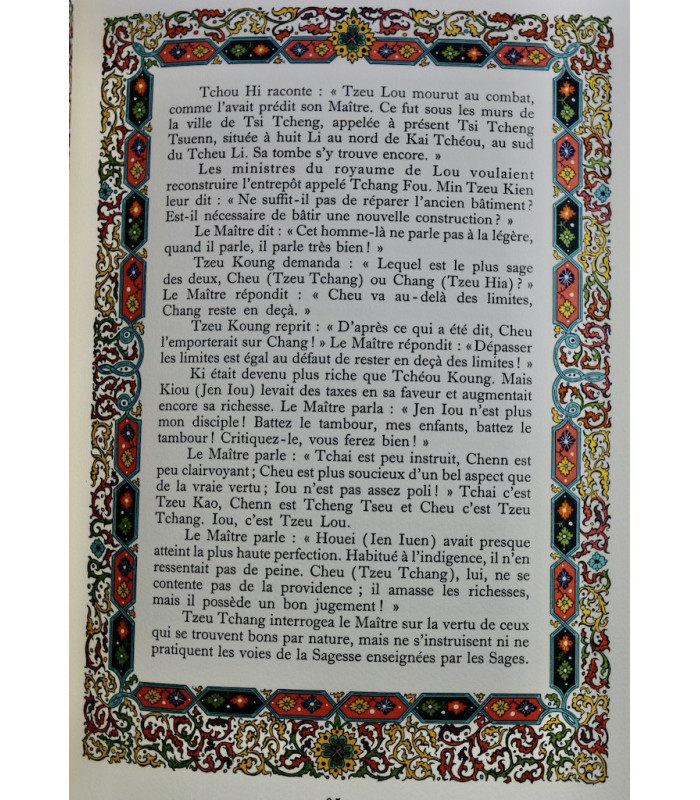 Tchou Hi raconte : « Tzeu Lou mourut au combat,
comme l'avait prédit son Maître. Ce fut sous les murs
de la ville de Tsi Tcheng, appelée à présent Tsi Tcheng
Tsuenn, située à huit Li au nord de Kai Tchéou, au sud
du Tcheu Li. Sa tombe s'y trouve encore. »
Les ministres du royaume de Lou voulaient
reconstruire l'entrepôt appelé Tchang Fou. Min Tzeu Kien
leur dit : « Ne suffit-il pas de réparer l'ancien bâtiment ?
Est-il nécessaire de bâtir une nouvelle construction ? »
Le Maître dit : « Cet homme-là ne parle pas à la légère,
quand il parle, il parle très bien ! »
Tzeu Koung demanda : « Lequel est le plus sage
des deux, Cheu (Tzeu Tchang) ou Chang (Tzeu Hia) ? »
Le Maître répondit : « Cheu va au-delà des limites,
Chang reste en deçà. »
Tzeu Koung reprit : « D'après ce qui a été dit, Cheu
l'emporterait sur Chang ! » Le Maître répondit : « Dépasser
les limites est égal au défaut de rester en deçà des limites ! »
Ki était devenu plus riche que Tchéou Koung. Mais
Kiou (Jen Iou) levait des taxes en sa faveur et augmentait
encore sa richesse. Le Maître parla : « Jen Iou n'est plus
mon disciple ! Battez le tambour, mes enfants, battez le
tambour ! Critiquez-le, vous ferez bien ! »
Le Maître parle : « Tchai est peu instruit, Chenn est
peu clairvoyant ; Cheu est plus soucieux d'un bel aspect que
de la vraie vertu ; Iou n'est pas assez poli ! » Tchai c'est
Tzeu Kao, Chenn est Tcheng Tseu et Cheu c'est Tzeu
Tchang. Iou, c'est Tzeu Lou.
Le Maître parle : « Houei (Ien Iuen) avait presque
atteint la plus haute perfection. Habitué à l'indigence, il n'en
ressentait pas de peine. Cheu (Tzeu Tchang), lui, ne se
contente pas de la providence ; il amasse les richesses,
mais il possède un bon jugement ! »
Tzeu Tchang interrogea le Maître sur la vertu de ceux
qui se trouvent bons par nature, mais ne s'instruisent ni ne
pratiquent les voies de la Sagesse enseignées par les Sages.